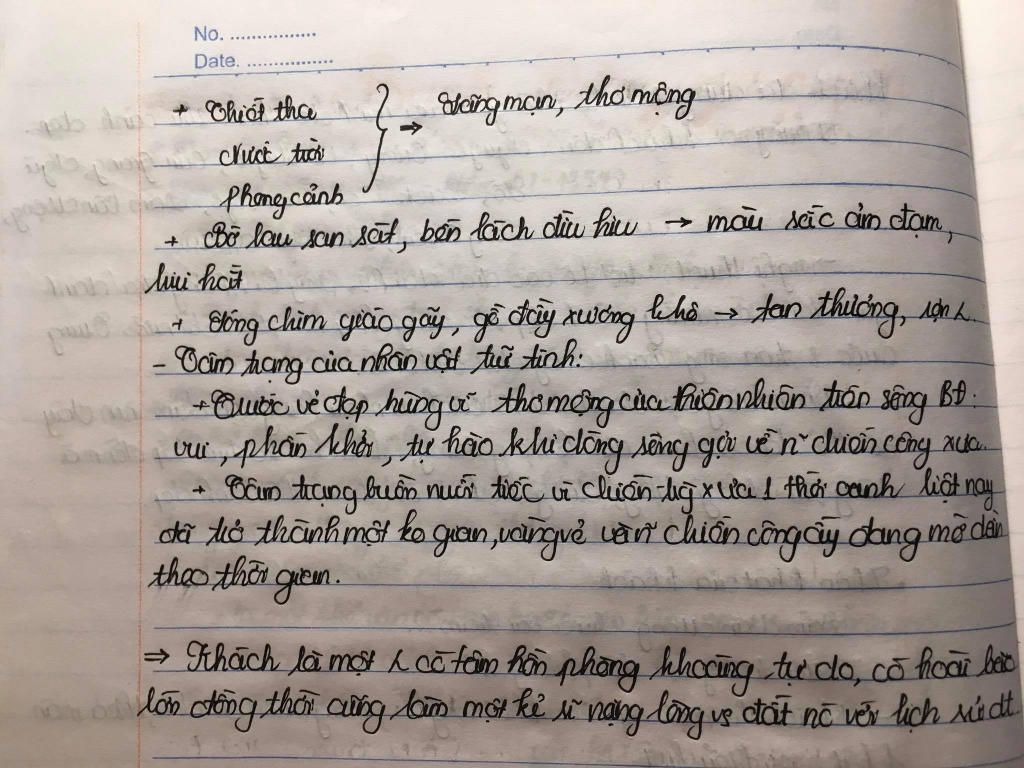 No. ................
Date. ................
+ Thiết tha } ⇒ Lãng mạn, thơ mộng
Nước trời
Phong cảnh
+ Bờ lau san sát, bến lách đìu hiu → màu sắc ảm đạm,
hiu hắt
+ Sông chìm giáo gãy, gò đầy xương khô → tan thương, rợn
- Tâm trạng của nhân vật trữ tình:
+ Trước vẻ đẹp hùng vĩ thơ mộng của thiên nhiên trên sông BĐ:
vui, phấn khởi, tự hào khi dòng sông gợi về n~ chiến công xưa.
+ Tâm trạng buồn nuối tiếc vì chiến xưa 1 thời oanh liệt nay
đã trở thành một ko gian, vắng vẻ và n~ chiến công ấy đang mờ dần
theo thời gian.
⇒ Khách là một có tâm hồn phóng khoáng tự do, có hoài bão
lớn đồng thời cũng làm một kẻ sĩ nặng lòng vs đất nc với lịch sử dt.